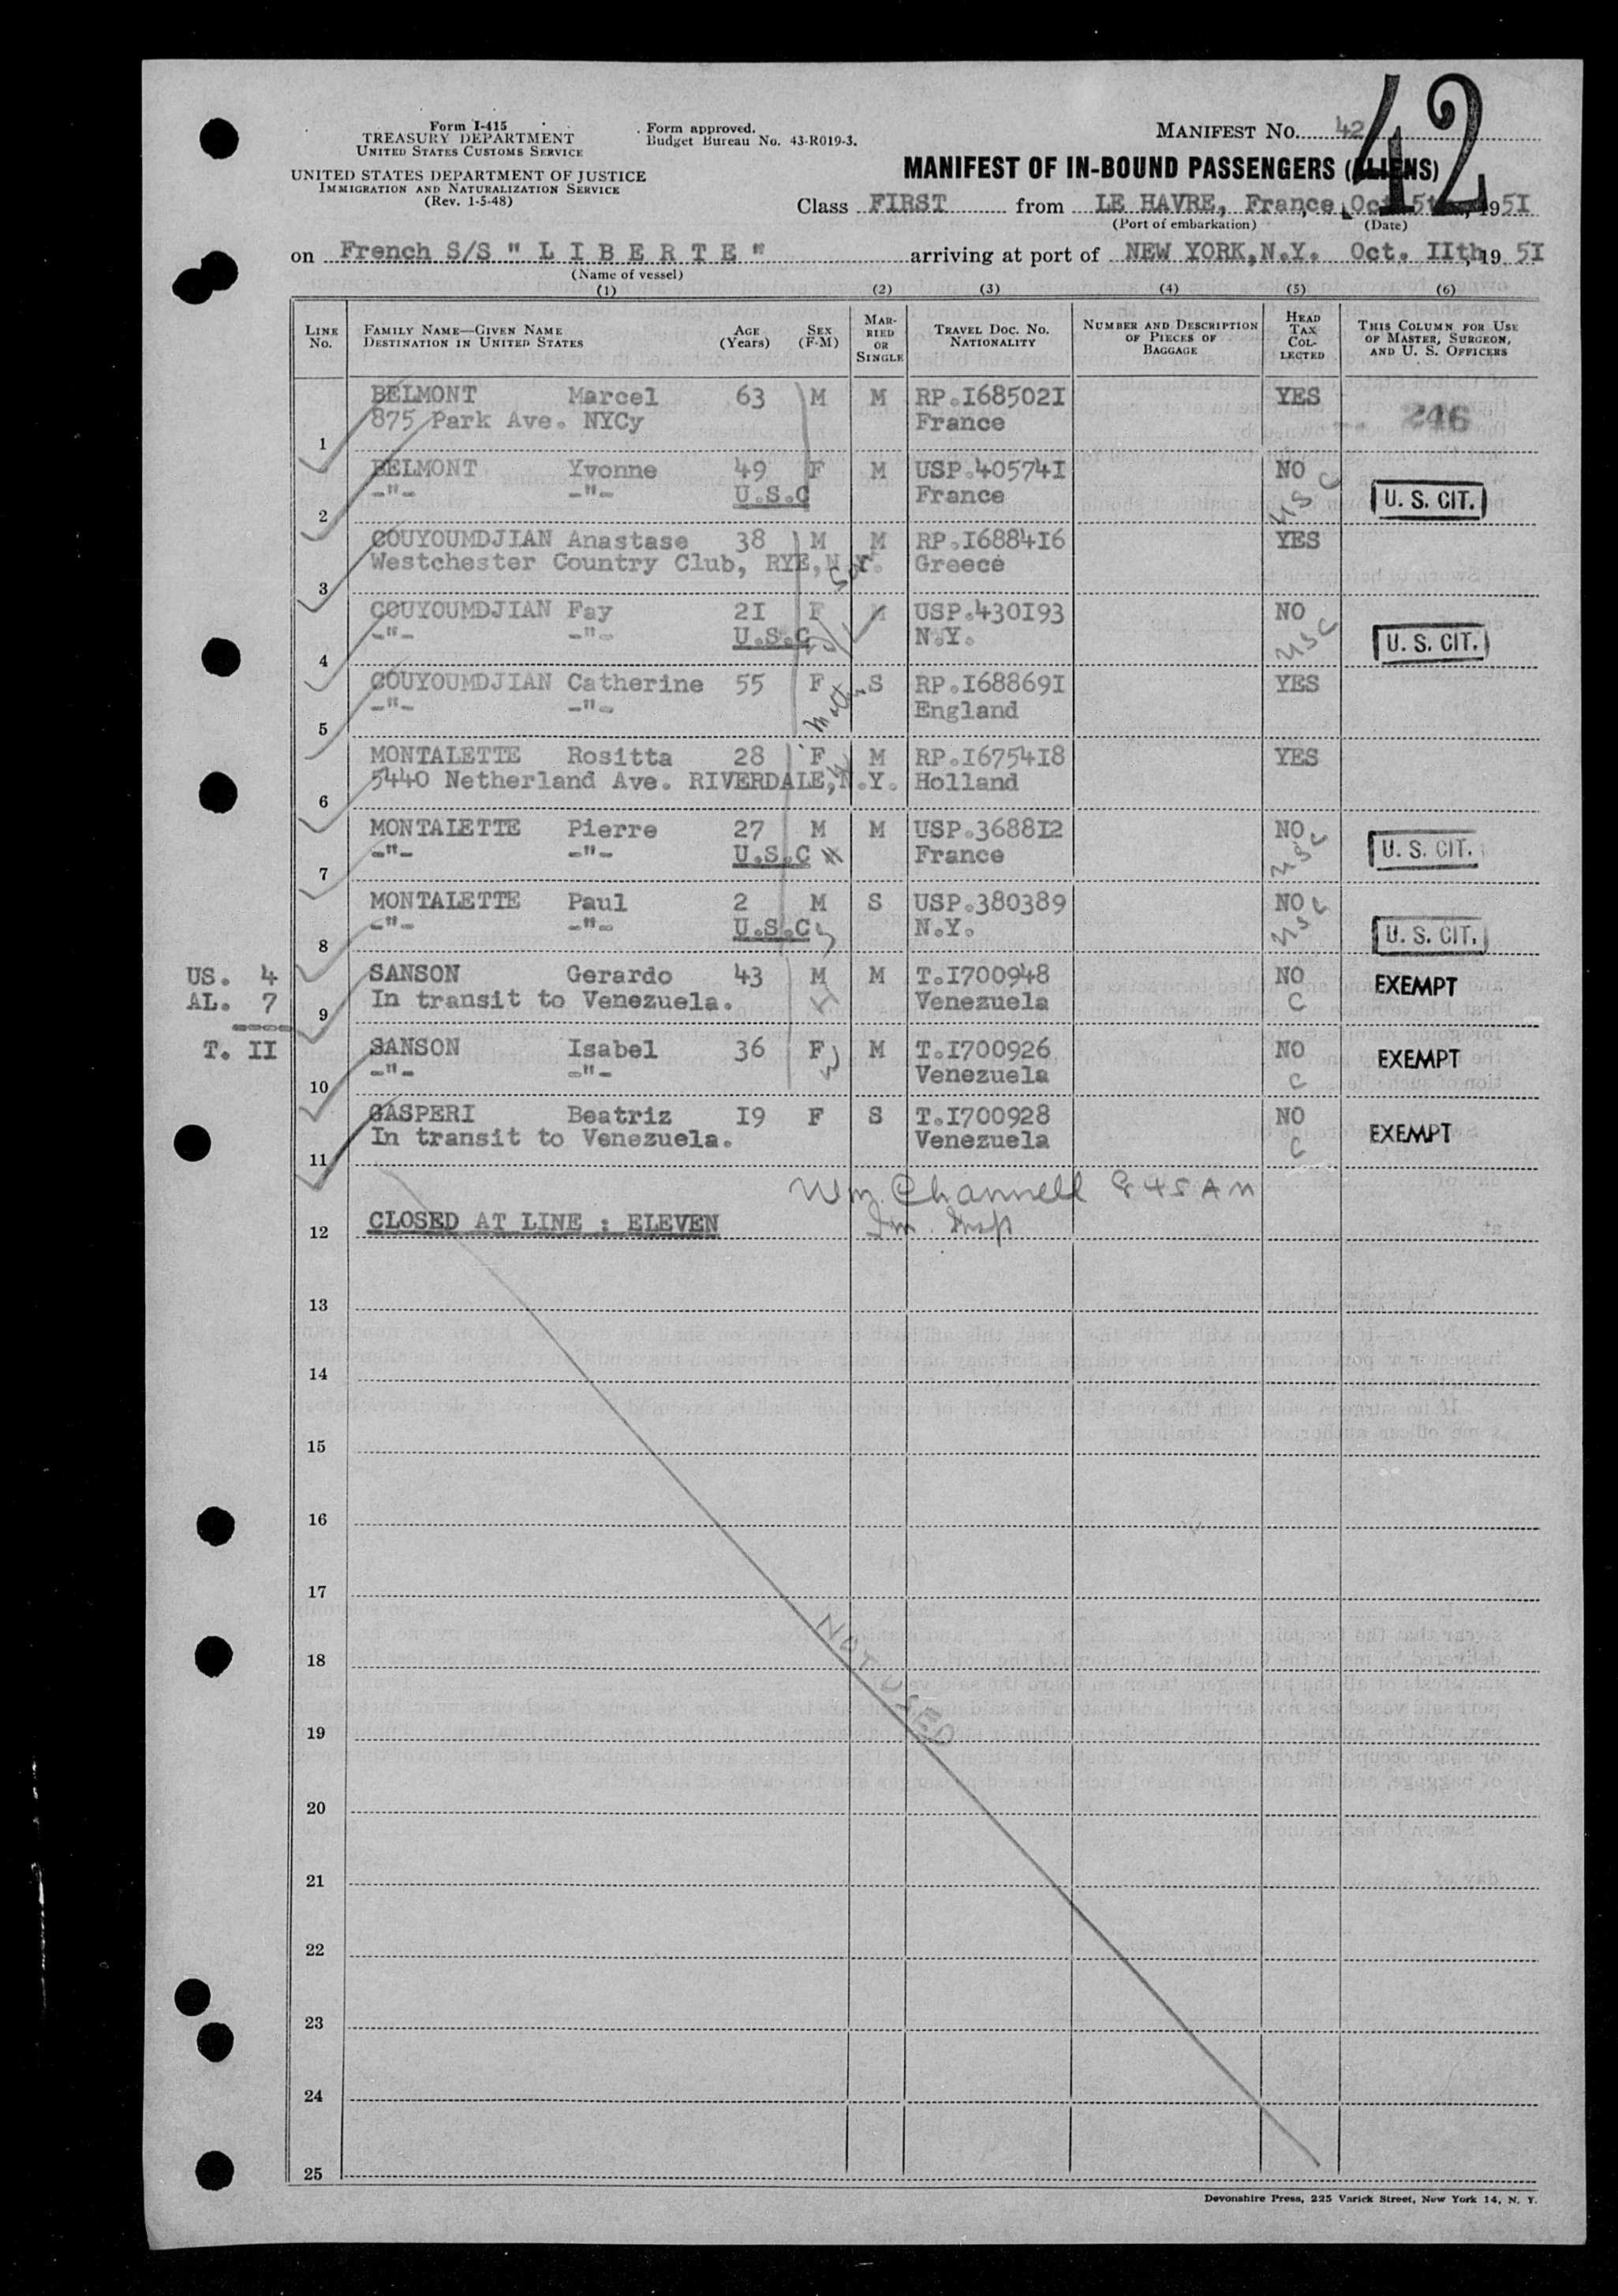 Form I-415
TREASURY DEPARTMENT
UNITED STATES CUSTOMS SERVICE
UNITED STATES DEPARTMENT OF JUSTICE
IMMIGRATION AND NATURALIZATION SERVICE
(Rev. 1-5-48)
Form approved.
Budget Bureau No. 43-R019-3.
MANIFEST NO. 42
42
MANIFEST OF IN-BOUND PASSENGERS (ALIENS)
Class FIRST from LE HAVRE, France, Oct. 5th, 1951
(Port of embarkation) (Date)
on French S/S " L I B E R T E " arriving at port of NEW YORK,N.Y. Oct. IIth, 19 5I
(Name of vessel)
(1) (2) (3) (4) (5) (6)
LINE No. FAMILY NAME—GIVEN NAME DESTINATION IN UNITED STATES AGE (Years) SEX (F-M) MARRIED OR SINGLE TRAVEL DOC. NO. NATIONALITY NUMBER AND DESCRIPTION OF PIECES OF BAGGAGE HEAD TAX COLLECTED THIS COLUMN FOR USE OF MASTER, SURGEON, AND U. S. OFFICERS
1 BELMONT Marcel 63 M M RP.I68502I YES 246
875 Park Ave. NYCy France
2 BELMONT Yvonne 49 F M USP.40574I NO USC U. S. CIT.
-"- -"- U.S.C France
3 COUYOUMDJIAN Anastase 38 M M RP.I6884I6 YES
Westchester Country Club, RYE,N.Y. Greece
4 COUYOUMDJIAN Fay 2I F M USP.430I93 NO USC U. S. CIT.
-"- -"- U.S.C N.Y.
5 COUYOUMDJIAN Catherine 55 F S RP.I68869I YES
-"- -"- Mother England
6 MONTALETTE Rositta 28 F M RP.I6754I8 YES
5440 Netherland Ave. RIVERDALE,N.Y. Holland
7 MONTALETTE Pierre 27 M M USP.3688I2 NO USC U. S. CIT.
-"- -"- U.S.C France
8 MONTALETTE Paul 2 M S USP.380389 NO USC U. S. CIT.
-"- -"- U.S.C N.Y.
US. 4
AL. 7
T. II
9 SANSON Gerardo 43 M M T.I700948 NO C EXEMPT
In transit to Venezuela. Venezuela
10 SANSON Isabel 36 F M T.I700926 NO C EXEMPT
-"- -"- Venezuela
11 GASPERI Beatriz I9 F S T.I700928 NO C EXEMPT
In transit to Venezuela. Venezuela
Wm. Channell 845 AM
Im. Insp
12 CLOSED AT LINE : ELEVEN
13
14
15
16
17
NOT USED
18
19
20
21
22
23
24
25
Devonshire Press, 225 Varick Street, New York 14, N. Y.